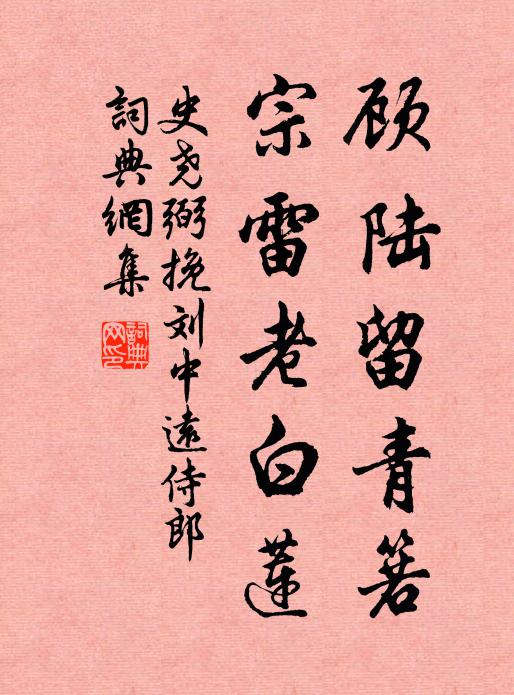 顾陆留青箬
宗雷老白莲
史尧弼挽刘中远侍郎
詞典網集
詞典網印